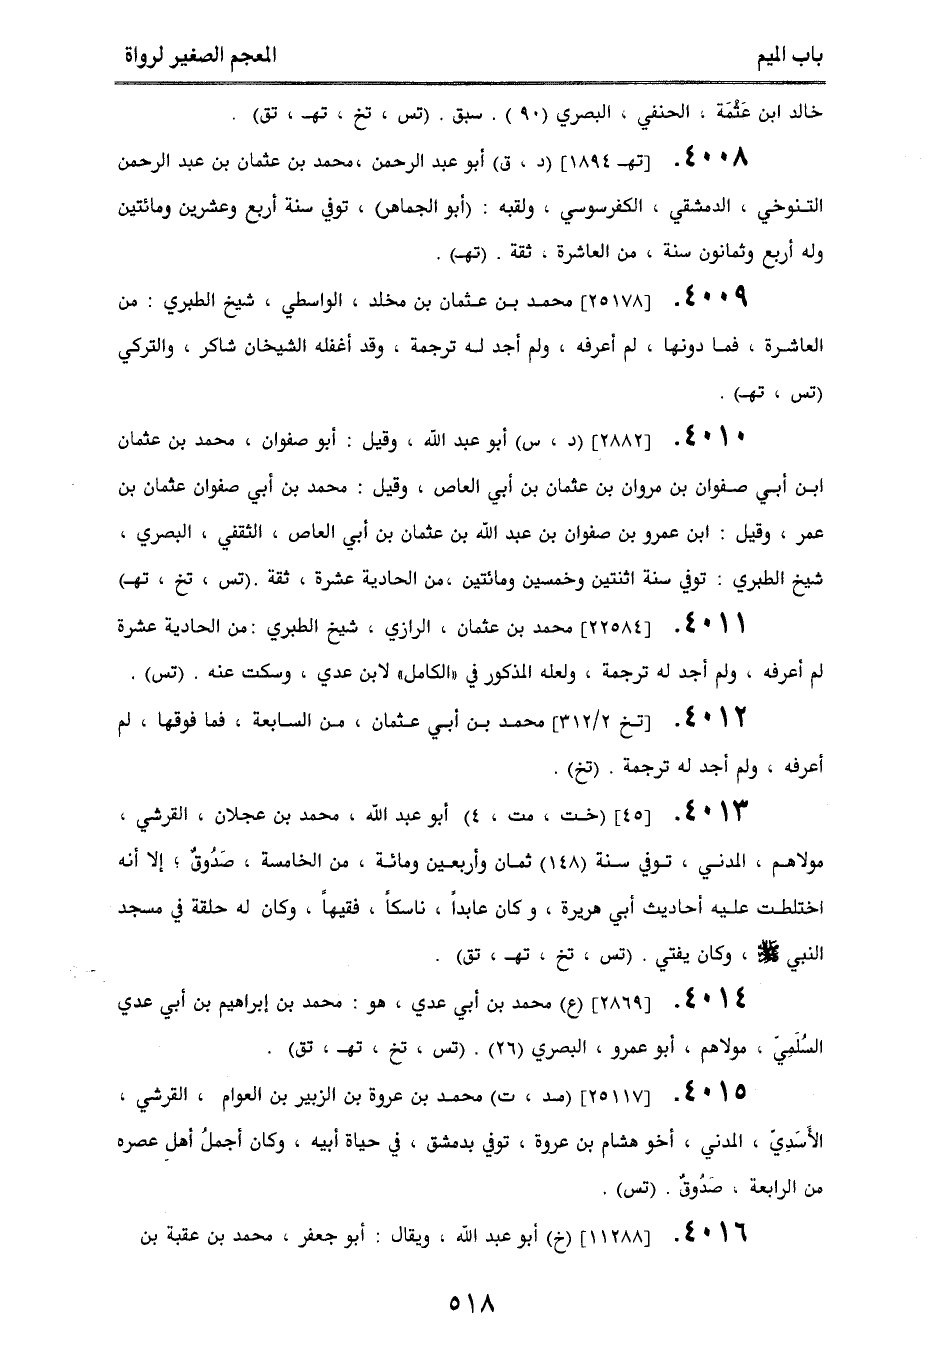 باب الميم
المعجم الصغير لرواة
خالد ابن عَثْمَة ، الحنفي ، البصري (٩٠) . سبق . (تس ، تخ ، تهـ ، تق) .
٤٠٠٨. [تهـ ١٨٩٤] (د ، ق) أبو عبد الرحمن ،محمد بن عثمان بن عبد الرحمن
التنوخي ، الدمشقي ، الكفرسوسي ، ولقبه : (أبو الجماهر) ، توفي سنة أربع وعشرين ومائتين
وله أربع وثمانون سنة ، من العاشرة ، ثقة . (تهـ) .
٤٠٠٩. [٢٥١٧٨] محمد بن عثمان بن مخلد ، الواسطي ، شيخ الطبري : من
العاشرة ، فما دونها ، لم أعرفه ، ولم أجد له ترجمة ، وقد أغفله الشيخان شاكر ، والتركي
(تس ، تهـ) .
٤٠١٠. [٢٨٨٢] (د ، س) أبو عبد الله ، وقيل : أبو صفوان ، محمد بن عثمان
ابن أبي صفوان بن مروان بن عثمان بن أبي العاص ، وقيل : محمد بن أبي صفوان عثمان بن
عمر ، وقيل : ابن عمرو بن صفوان بن عبد الله بن عثمان بن أبي العاص ، الثقفي ، البصري ،
شيخ الطبري : توفي سنة اثنتين وخمسين ومائتين ،من الحادية عشرة ، ثقة .(تس ، تخ ، تهـ)
٤٠١١. [٢٢٥٨٤] محمد بن عثمان ، الرازي ، شيخ الطبري :من الحادية عشرة
لم أعرفه ، ولم أجد له ترجمة ، ولعله المذكور في «الكامل» لابن عدي ، وسكت عنه . (تس) .
٤٠١٢. [تخ ٣١٢/٢] محمد بن أبي عثمان ، من السابعة ، فما فوقها ، لم
أعرفه ، ولم أجد له ترجمة . (تخ) .
٤٠١٣. [٤٥] (خت ، مت ، ٤) أبو عبد الله ، محمد بن عجلان ، القرشي ،
مولاهم ، المدني ، توفي سنة (١٤٨) ثمان وأربعين ومائة ، من الخامسة ، صَدُوقٌ ؛ إلا أنه
اختلطت عليه أحاديث أبي هريرة ، وكان عابداً ، ناسكاً ، فقيهاً ، وكان له حلقة في مسجد
النبي ﷺ ، وكان يفتي . (تس ، تخ ، تهـ ، تق) .
٤٠١٤. [٢٨٦٩] (ع) محمد بن أبي عدي ، هو : محمد بن إبراهيم بن أبي عدي
السُلَمِيّ ، مولاهم ، أبو عمرو ، البصري (٢٦) . (تس ، تخ ، تهـ ، تق) .
٤٠١٥. [٢٥١١٧] (مد ، ت) محمد بن عروة بن الزبير بن العوام ، القرشي ،
الأَسَدِيّ ، المدني ، أخو هشام بن عروة ، توفي بدمشق ، في حياة أبيه ، وكان أجملُ أهل عصره
من الرابعة ، صَدُوقٌ . (تس) .
٤٠١٦. [١١٢٨٨] (خ) أبو عبد الله ، ويقال : أبو جعفر ، محمد بن عقبة بن
٥١٨